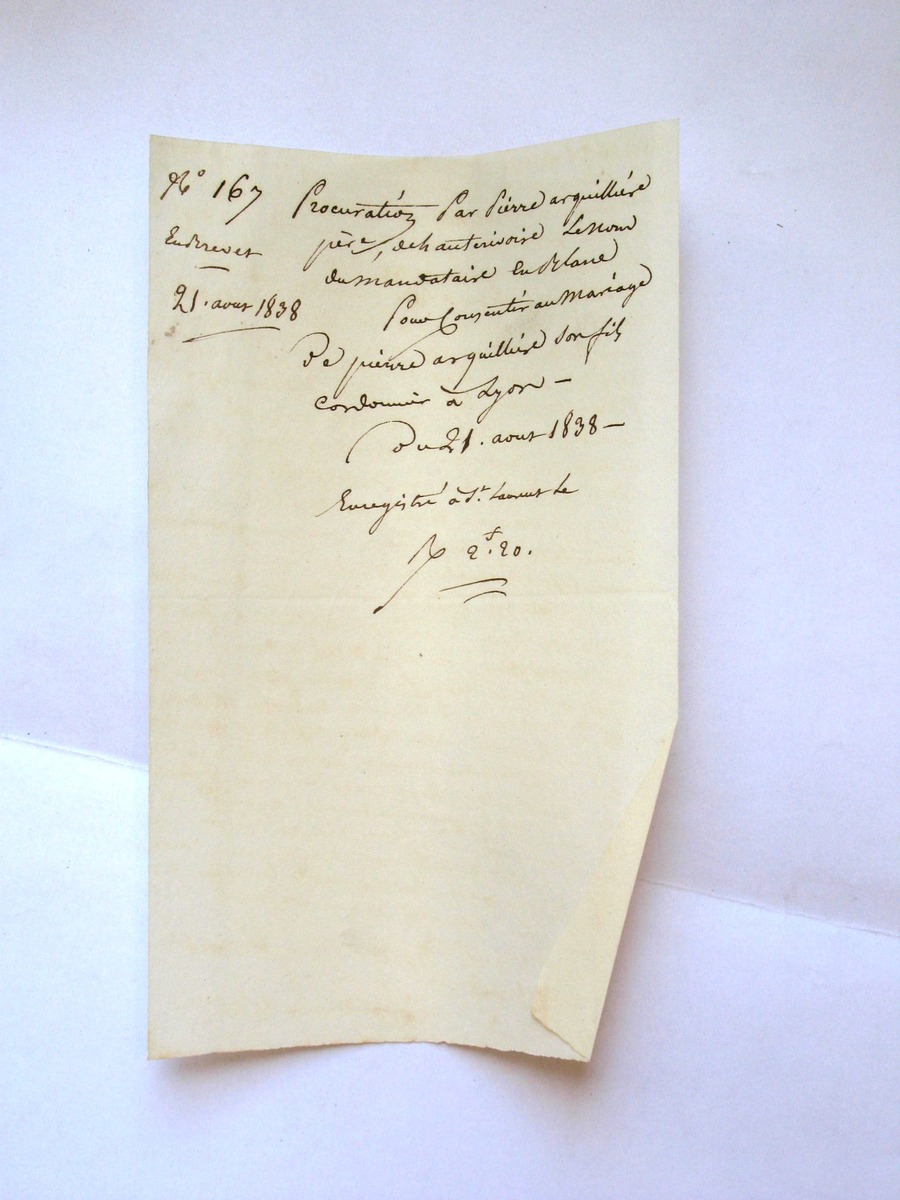 No 167
En Brevet
21. aout 1838
Procuration Par Pierre arquilliére
père, de hauterivoire Le nom
du mandataire En Blanc
Pour Consentir au Mariage
De pierre arquilliére son fils
cordonnier à Lyon —
Du 21. aout 1838 —
Enregistré à St. Laurent le
R 2f. 20.